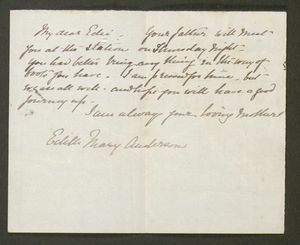 My dear Edie - Your father will meet
you at the station on Thursday night -
You had better bring any thing in the way of
books you have. I am pressed for time - but
we are all well - and hope you will have a good
journey up -
I am always your loving mother
Edith Mary Anderson